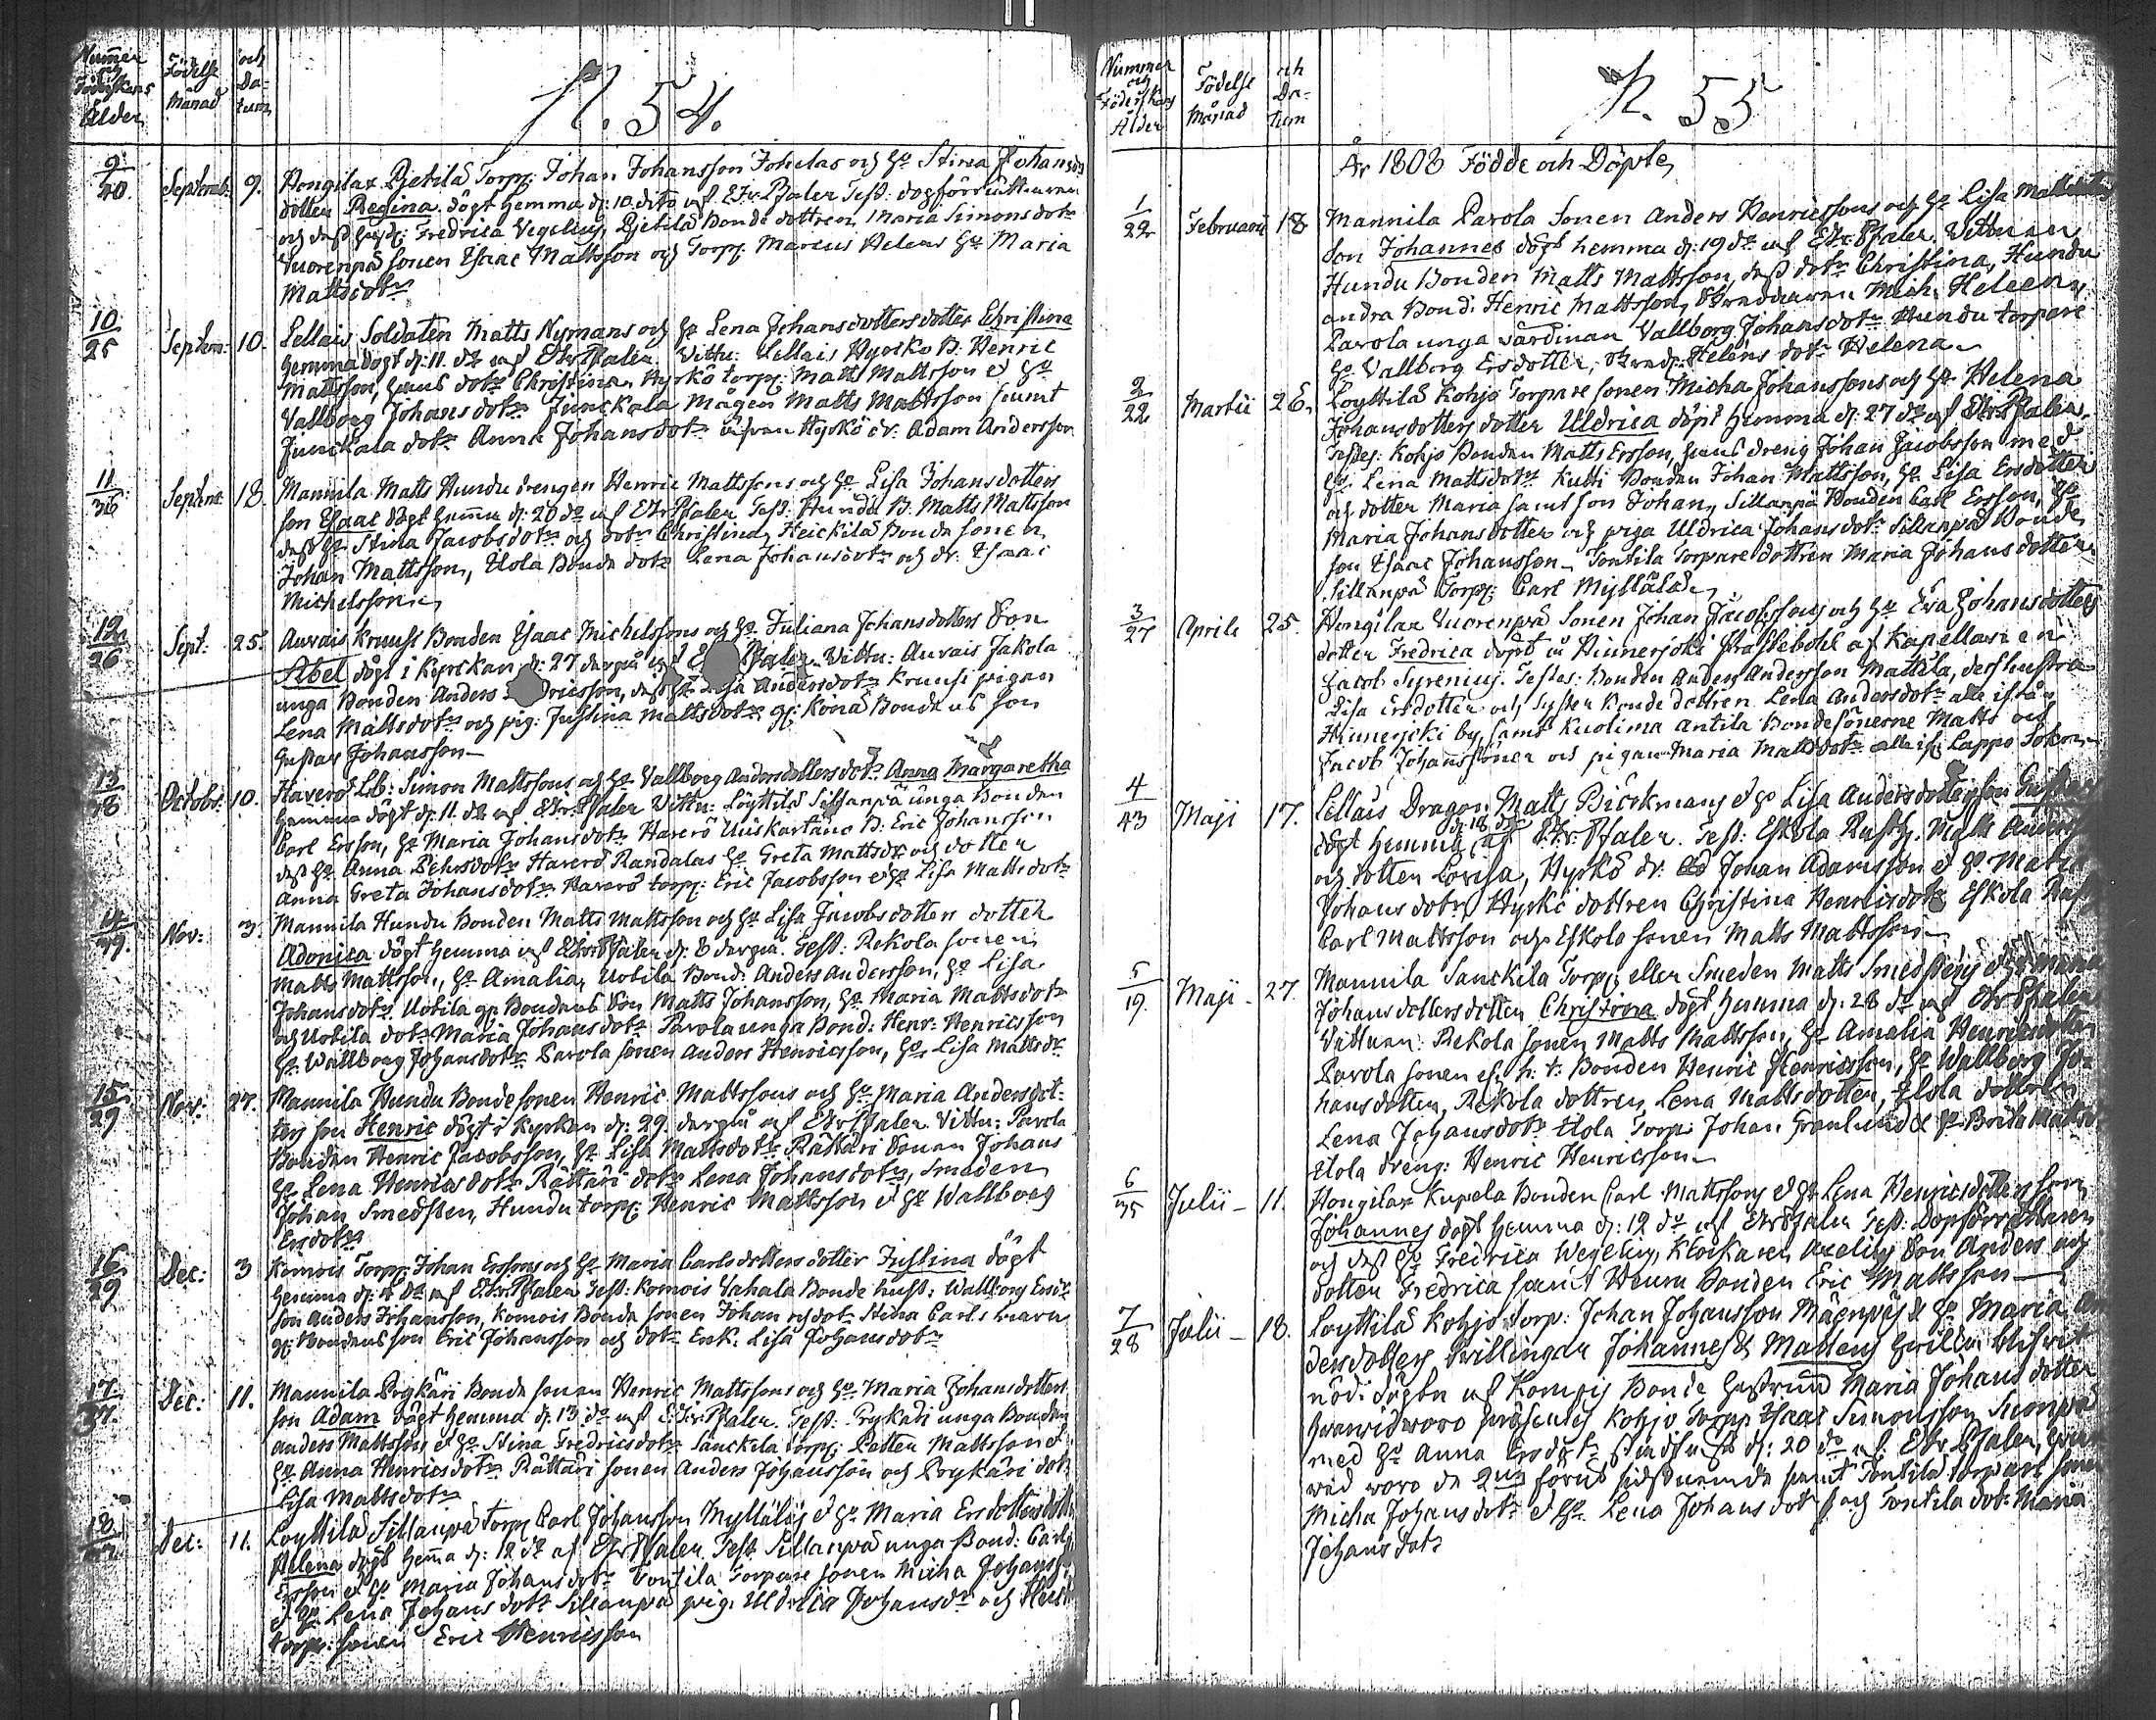 Nummer och Föderskans Ålder
Födelse Månad
och Datum
N. 54.
9/40. Septemb: 9. Hongilax Pietilä Torp: Johan Johansson Johelas och H:o Stina Johans
dotter Regina. döpt hemma d: 10. dito af Etv. Pfaler Test: dopförrättaren
och dess hust: Fredrica Vegelius, Pietilä Bonde dottren Maria Simonsdotr
Vuorenpä sonen Esaac Mattsson och Torp: Marcus Helens H:o Maria
Mattsdotr
10/25 Septem: 10. Lellais Soldaten Matts Nymans och H:o Lena Johansdotters dotter Christina
hemma döpt d: 11. do af Etv. Pfaler. Vittn: Lellais Hyrskö B: Henric
Mattsson, hans dotr Christina, Hyrskö torp: Matts Mattsson & H:o
Vallborg Johansdotr Junckala mågen Matts Mattsson samt
Junckala dotr Anna Johansdotr äfven Hyrskö dr: Adam Andersson
11/36 Septem: 18. Mannila Matts Hundu drengen Henric Mattssons och H:o Lisa Johansdotters
son Esaac döpt hemma d: 20 do af Etv Pfaler Test: Hundu B: Matts Mattsson
dess H:o Stina Jacobsdotr och dotr Christina, Heickilä Bonde sonen
Johan Mattsson, Uola Bonde dotr Lena Johansdotr och dr: Esaac
Michelsson
12/26 Sept: 25. Aurais Kruusi Bonden Esaac Michelssons och H:o Juliana Johansdotters Son
Abel döpt i Kyrckan d: 27 derpå af Pfaler. Vittn: Aurais Jakola
unga Bonden Anders ricsson, dess H:o Lisa Andersdotr Kruusi pigan
Lena Mattsdotr och pig: Justina Mattsdotr gl: Köna Bondens son
Gustav Johansson
13/38 Octobr: 10. Haverö Lb: Simon Mattssons och H:o Vallborg Andersdotters dotr Anna Margaretha
hemma döpt d: 11. do af Etv. Pfaler Vittn: Löyttilä Sillanpä unga Bonden
Carl Ersson, H:o Maria Johansdotr Haverö Uuskartano B: Eric Johansson
dess H:o Anna Pehrsdotr Haverö Randalas H:o Greta Mattsdr och dotter
Anna Greta Johansdotr Haverö torp: Eric Jacobsson & H:o Lisa Mattsdotr
14/39. Nov: 3. Mannila Hundu Bonden Matts Mattsson och H:o Lisa Jacobsdotters dotter
Adonica döpt hemma af Etv. Pfaler d: 8 derpå. Test: Rekola sonen
Matts Mattsson, H:o Amalia, Uotila Bond: Anders Andersson, H:o Lisa
Johansdotr. Uotila gl. Bondens Son Matts Johansson, H:o Maria Mattsdotr
och Uotila dotr Maria Johansdotr Parola unga Bond: Henr: Henricsson
H:o Wallborg Johansdotr Parola sonen Anders Henricsson, H:o Lisa Mattsdr
15/29 Nov: 27. Mannila Hundu Bondesonen Henric Mattssons och H:o Maria Andersdot-
ters son Henric döpt i Kyrkan d: 29. derpå af Etv Pfaler Vittn: Parola
Bonden Henric Jacobsson, H:o Lisa Mattsdotr Rättäri Sonen Johans
H:o Lena Henricsdotr Rättäri dotr Lena Johansdotr, Smeden
Johan Smedsten, Hundu torp: Henric Mattsson & H:o Wallborg
Ersdotr
16/29 Dec: 3 Komois Torp: Johan Erssons och H:o Maria Carlsdotters dotter Justina döpt
hemma d: 4 do af Etv. Pfaler Test: Komois Vahala Bonde hust: Wallborg Erics
son Anders Johansson, Komois Bonde sonen Johan och dotr Stina Carls barn
gl: Bondens son Eric Johansson och dotr Enk. Lisa Johansdotr
17/37. Dec: 11. Mannila Prykäri Bonde sonen Henric Mattssons och H:o Maria Johansdotters
son Adam döpt hemma d: 13 do af Etv. Pfaler. Test: Prykäri unga Bonden
Anders Mattsson & H:o Stina Fredricsdotr Sanckila torp: Petter Mattsson &
H:o Anna Henricsdotr Rättäri sonen Anders Johansson och Prykäri dotr
Lisa Mattsdotr
18/ Dec: 11. Loyttilä Sillanpä Torp Carl Johansson Myllälös & H:o Maria Ersdotters dotter
Helena döpt hemma d: 12 do af Etv Pfaler. Test Sillanpä unga Bond: Carl
Ersson & H:o Maria Johansdotr Tontila Torpare sonen Micha Johansson
& H:o Lena Johansdotr Sillanpä pig: Uldrica Johansdr och
torp: sonen Eric Henricsson
Nummer och Föderskans Ålder
Födelse Månad
och Datum
N. 55
År 1808 Födde och Döpte
1/22 Februarii 18 Mannila Parola Sonen Anders Henricssons och H:o Lisa Mattsdotters
Son Johannes döpt hemma d: 19 do af Etv. Pfaler. Vittnen
Hundu Bonden Matts Mattsson, dess dotr Christina, Hundu
andra Bond: Henric Mattsson, Skreddaren Mich: Heleen,
Parola unga värdinan Vallborg Johansdotr Hundu torpare
H:o Vallborg Ersdotter, Skred: Heléns dotr Helena
2/22 Martii 26. Loyttilä Kohjo Torpare sonen Micha Johanssons och H:o Helena
Johansdotters dotter Uldrica döpt hemma d: 27 do af Etv Pfaler.
Testes: Kohjo Bonden Matts Ersson, hans dreng Johan Jacobsson med
H:o Lena Mattsdotr Kutti Bonden Johan Mattsson, H:o Lisa Ersdotter
och dotter Maria samt son Johan, Sillanpä Bonden Carl Ersson, H:o
Maria Johansdotter och piga Uldrica Johansdotr Sillanpä Bonde
son Esaac Johansson, Tontila Torpare dottren Maria Johansdotter
Sillanpä Torp: Carl Myllälä
3/27 Aprils 25. Hongilax Vuorenpä Sonen Johan Jacobssons och H:o Eva Johansdotters
dotter Fredrica döpt i Hinnerjoki Prästebohl af Kapellanen
Jacob Tyrenius. Testes: Bonden Anders Andersson Mattila, des hustru
Lisa Ersdotter och syster Bonde dottren Lena Andersdotr alla ifrån
Hinnerjoki by, samt Kuolima Antila Bondesönerne Matts och
Jacob Johanssöner och pigan Maria Mattsdotr alla if: Lappo Sokn
4/43 Maji 17. Lellais Dragon Matts Biörkmans & H:o Lisa Andersdotters son
döpt hemma d: 18 do af Etv. Pfaler. Test: Eskola Rusth: Matts
och dotter Lovisa, Hyrskö dr: Johan Adamsson & H:o Maria
Johansdotr, Hyrskö dottren Christina Henricsdotr Eskola
Carl Mattsson och Eskola sonen Matts Mattsson
5/19. Maji 27. Mannila Sanckila Torp: eller Smeden Matts Smedstens & H:o
Johansdotters dotter Christina döpt hemma d: 28 do af Etv Pfaler
Vittnen: Rekola sonen Matts Mattsson, H:o Amelia Henricsdotter
Parola sonen Bonden Henric Henricsson, H:o Wallborg Jo-
hansdotter, Rekola dottren Lena Mattsdotter, Uola dottren
Lena Johansdotr Uola Torp: Johan Granlund & H:o Brita
Uola dreng: Henric Henricsson
6/35 Julii 11. Hongilax Kupela Bonden Carl Mattssons & H:o Lena Henricsdotters son
Johannes döpt hemma d: 12 do af Etv Pfaler Test: Dopförrättaren
och dess H:o Fredrica Wegelius, Klockaren Axelius Son Anders och
dotter Fredrica samt Bonden Eric Mattsson
7/28 Julii 18. Loyttilä Kohjo torp: Johan Johansson Mäenpäs & H:o Maria An
dersdotters Twillingar Johannes & Mattens hvilka blifvit
nöd: döpte af Kompis Bonde hustrun Maria Johansdotter
hvarvid voro präsentes Kohjo Torp: Esaac Simonsson
med H:o Anna Ersdotr d: 20 do af Etv Pfaler, hvar
vid woro de 2ne förut sidstnämde samt Tontila torpare sonen
Micha Johansdotr & H:o Lena Johansdotr och Tontila dotr Maria
Johansdotr